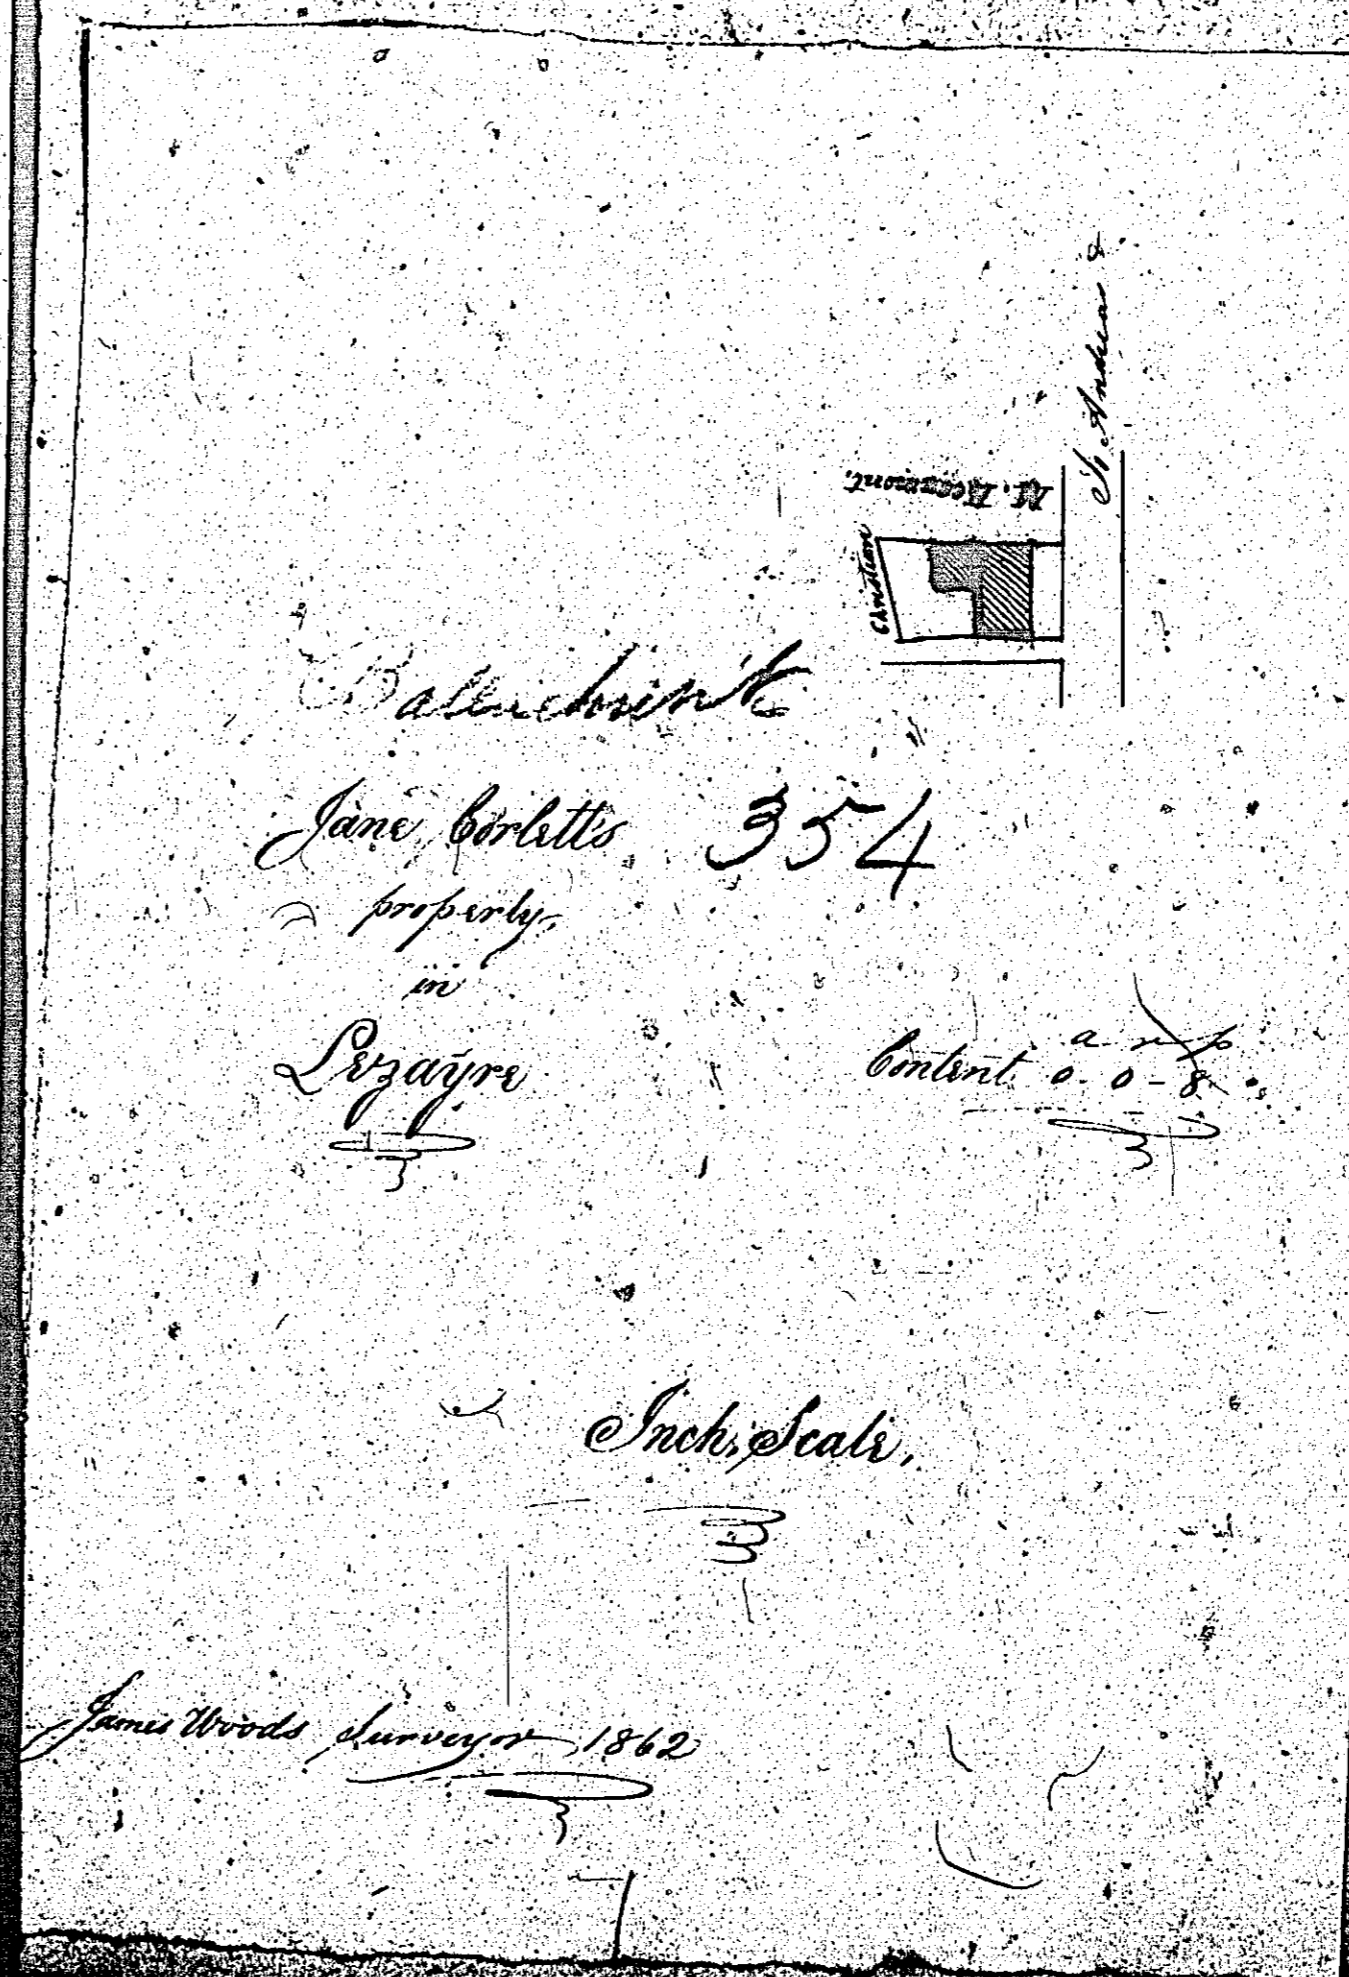 To Andreas &
M. Beaumont.
Christian
Jane Corletts 354
property,
in
Lezayre
a r p
Content 0-0-8
Inch Scale,
James Woods Surveyor 1862